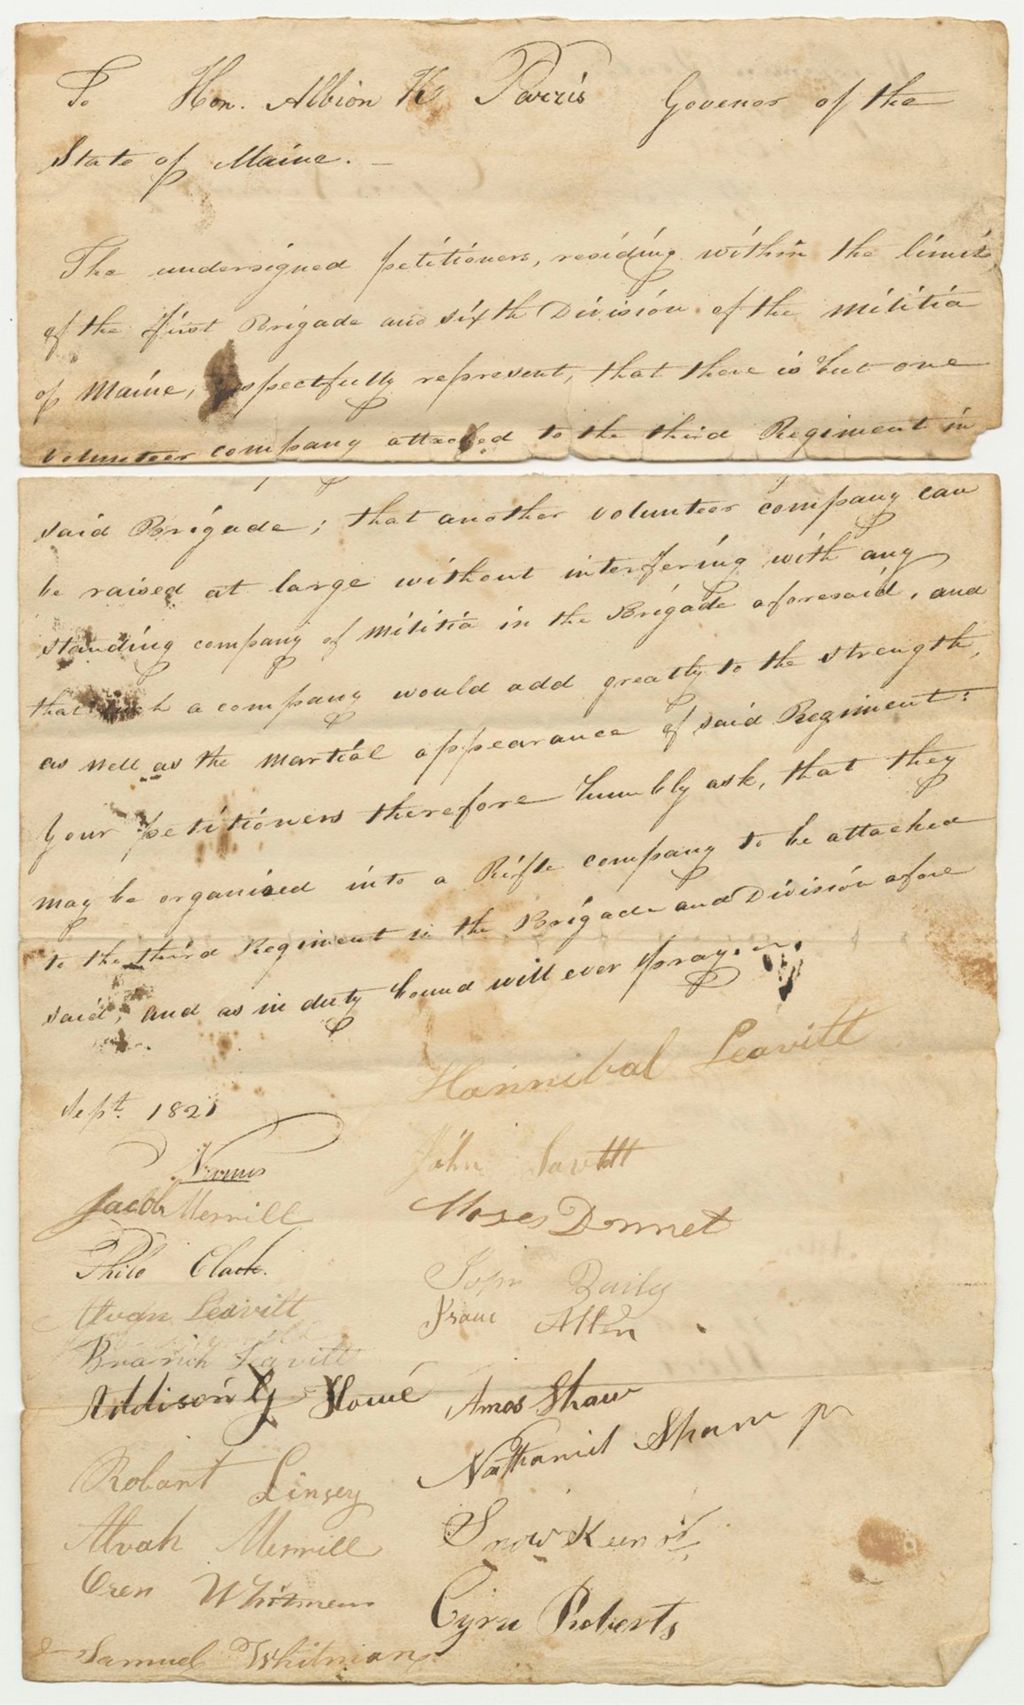 To Hon. Albion K. Parris Govenor of the
State of Maine. —
The undersigned petitioners, residing within the limits
of the First Brigade and sixth Division of the militia
of Maine, respectfully represent, that there is but one
volunteer company attached to the third Regiment in
said Brigade; that another volunteer company can
be raised at large without interfering with any
standing company of militia in the Brigade aforesaid, and
that such a company would add greatly to the strength,
as well as the martial appearance of said Regiment:
Your petitioners therefore humbly ask, that they
may be organized into a Rifle company to be attached
to the third Regiment in the Brigade and Division afore
said; and as in duty bound will ever pray.
Hannibal Leavitt
Sept. 1821
Names
Jacob Merrill
Philo Clark.
Alvan Leavitt
Leavitt
Addison G
Robart Linsey
Alvah Merrill
Oren Whitmen
Samuel Whitman
John Lavitt
Moses Donnel
John Daily
Isaac Allen
Amos Shaw
Nathaniel Shaw jr
Snow Keen
Cyru Roberts